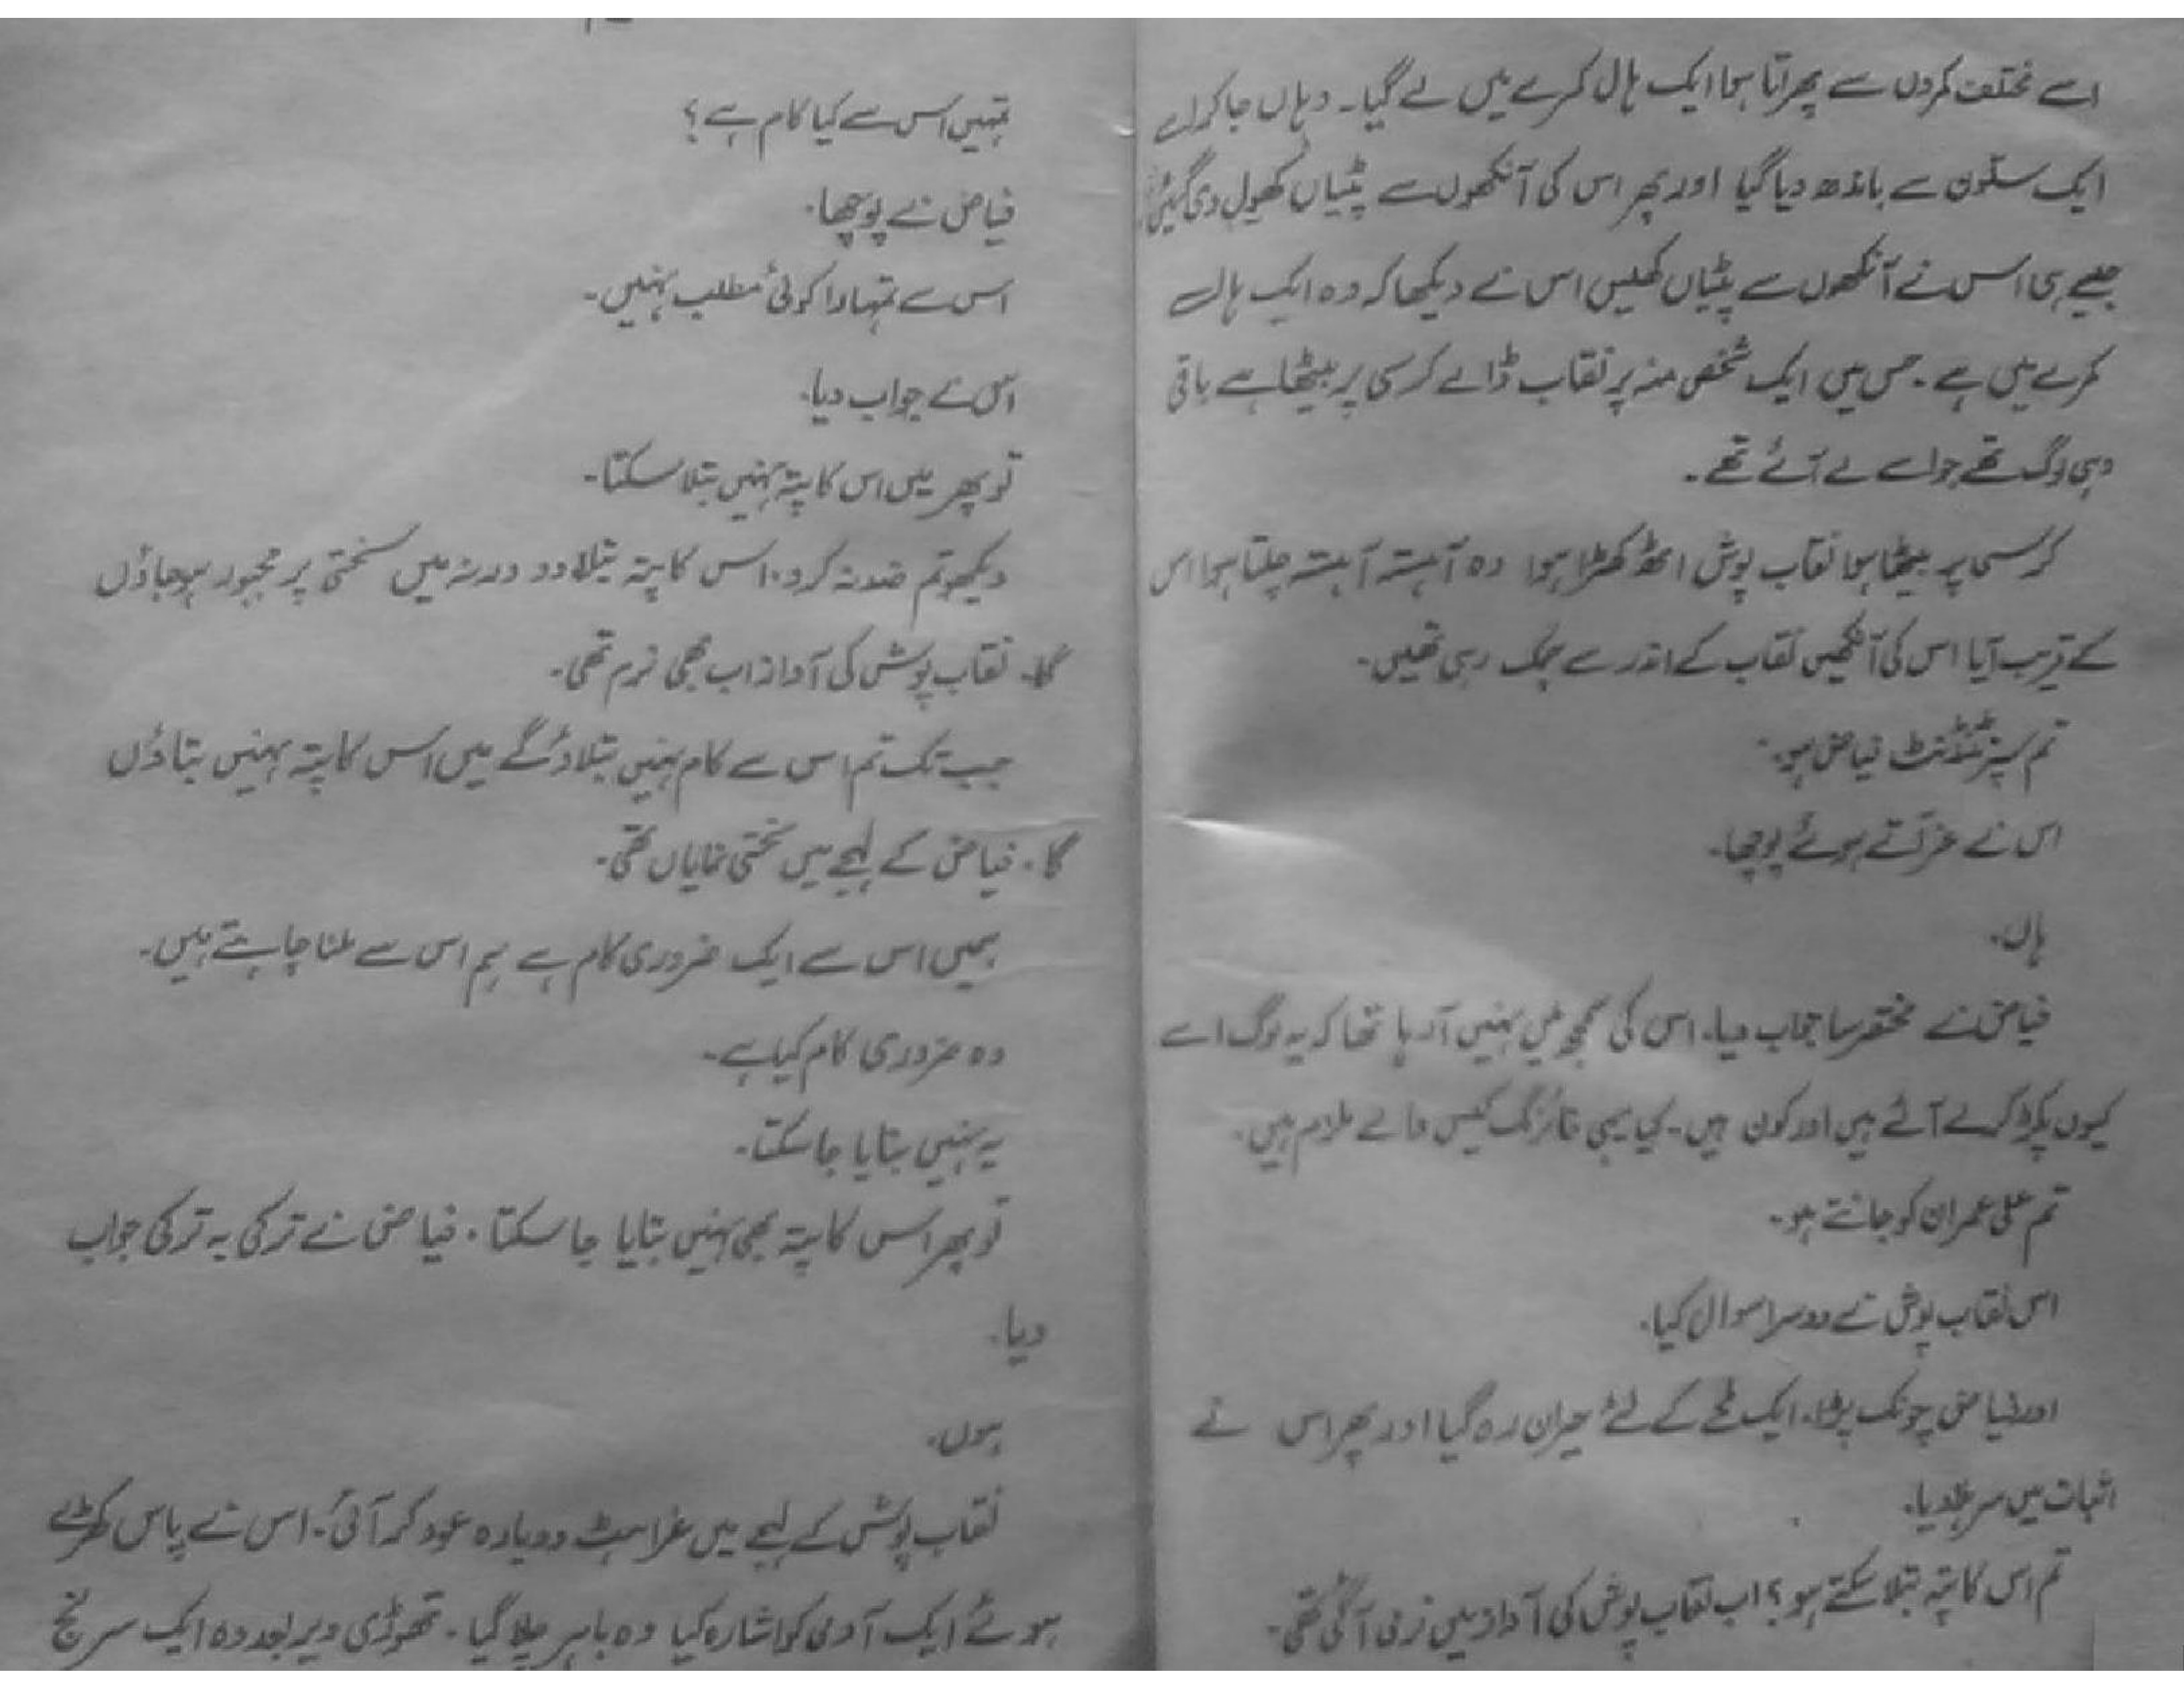 اسے مختلف کمروں سے پھراتا ہوا ایک ہال کمرے میں لے گیا۔ وہاں جا کر اسے
ایک ستون سے باندھ دیا گیا اور پھر اس کی آنکھوں سے پٹیاں کھول دی گئیں
جیسے ہی اس نے آنکھوں سے پٹیاں کھلیں اس نے دیکھا کہ وہ ایک ہال
کمرے میں ہے۔ جس میں ایک شخص منہ پر نقاب ڈالے کرسی پر بیٹھا ہے باقی
وہی لوگ تھے جو اسے لے آئے تھے۔
کرسی پر بیٹھا ہوا نقاب پوش اٹھ کھڑا ہوا وہ آہستہ آہستہ چلتا ہوا اس
کے قریب آیا اس کی آنکھیں نقاب کے اندر سے چمک رہی تھیں۔
تم سپرنٹنڈنٹ فیاض ہو۔
اس نے غراتے ہوئے پوچھا۔
ہاں۔
فیاض نے مختصر سا جواب دیا۔ اس کی سمجھ میں نہیں آ رہا تھا کہ یہ لوگ اسے
کیوں پکڑ کر لے آئے ہیں اور کون ہیں۔ کیا یہی فائرنگ کیس والے ملزم ہیں۔
تم علی عمران کو جانتے ہو۔
اس نقاب پوش نے دوسرا سوال کیا۔
اور فیاض چونک پڑا۔ ایک لمحے کے لئے حیران رہ گیا اور پھر اس نے
اثبات میں سر ہلا دیا۔
تم اس کا پتہ بتلا سکتے ہو؟ اب نقاب پوش کی آواز میں نرمی آ گئی تھی۔
تمہیں اس سے کیا کام ہے؟
فیاض نے پوچھا۔
اس سے تمہارا کوئی مطلب نہیں۔
اس نے جواب دیا۔
تو پھر میں اس کا پتہ نہیں بتلا سکتا۔
دیکھو تم ضد نہ کرو۔ اس کا پتہ بتلا دو ورنہ میں سختی پر مجبور ہو جاؤں
گا۔ نقاب پوش کی آواز اب بھی نرم تھی۔
جب تک تم اس سے کام نہیں بتلاؤ گے میں اس کا پتہ نہیں بتاؤں
گا۔ فیاض کے لہجے میں سختی نمایاں تھی۔
ہمیں اس سے ایک ضروری کام ہے ہم اس سے ملنا چاہتے ہیں۔
وہ ضروری کام کیا ہے۔
یہ نہیں بتایا جا سکتا۔
تو پھر اس کا پتہ بھی نہیں بتایا جا سکتا۔ فیاض نے ترکی بہ ترکی جواب
دیا۔
ہوں۔
نقاب پوش کے لہجے میں غراہٹ دوبارہ عود کر آئی۔ اس نے پاس کھڑے
ہوئے ایک آدمی کو اشارہ کیا وہ باہر چلا گیا۔ تھوڑی دیر بعد وہ ایک سرنج